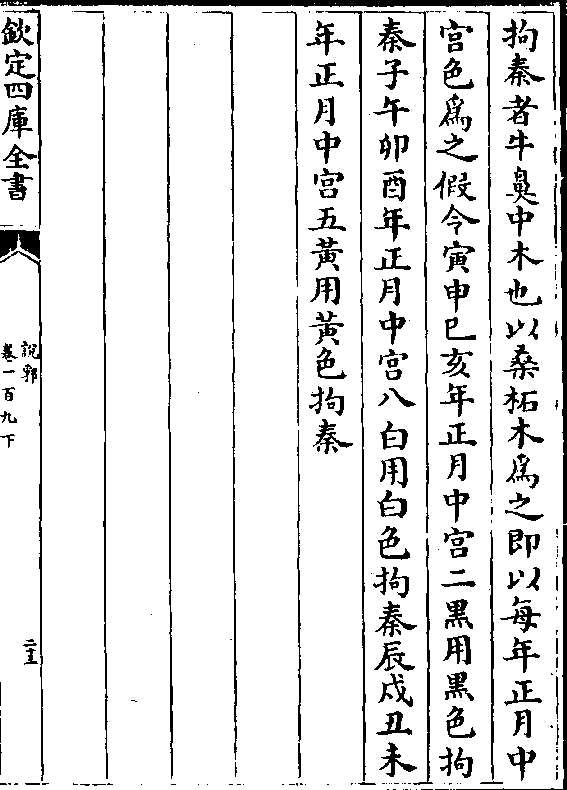 拘秦者牛鼻中木也以桑柘木爲之即以每年正月中
宫色爲之假令寅申巳亥年正月中宫二黑用黑色拘
秦子午卯酉年正月中宫八白用白色拘秦辰戍丑未
年正月中宫五黄用黄色拘秦
欽定四庫全書
說郛
卷一百九下
二十五